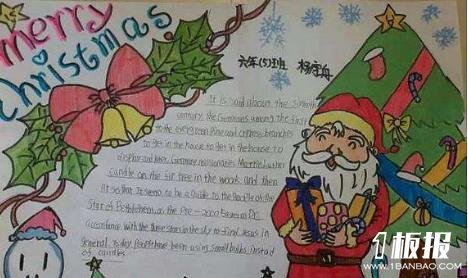 merry
Christmas
六年(5)班
It is said about the
century, the Germans among the first
to the evergreen Pine and cypress branches
to Set in the house to Set in the house to
candle on the fir tree in the woods and then
lit so that It seems to be a Guide to the People of the
Star of Bethlehem, as the
accordance with the three stars in the sky to find Jesus in
general. today People have been using small bulbs instead
of candles
1板报
WWW.1BANBAO.COM